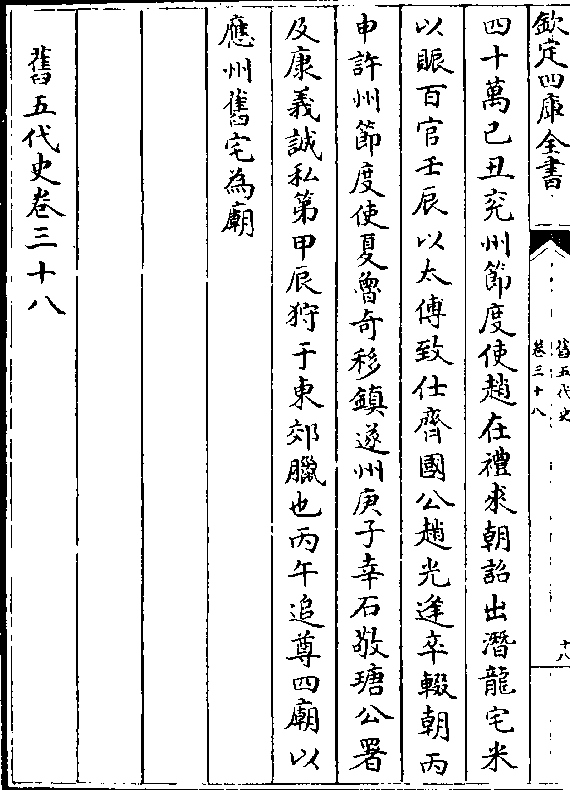 欽定四庫全書
舊五代史
卷三十八
十八
四十萬己丑兗州節度使趙在禮求朝詔出潛龍宅米
以賑百官壬辰以太傅致仕齊國公趙光逢卒輟朝丙
申許州節度使夏魯奇移鎮遂州庚子幸石敬瑭公署
及康義誠私第甲辰狩于東郊臘也丙午追尊四廟以
應州舊宅為廟
舊五代史卷三十八